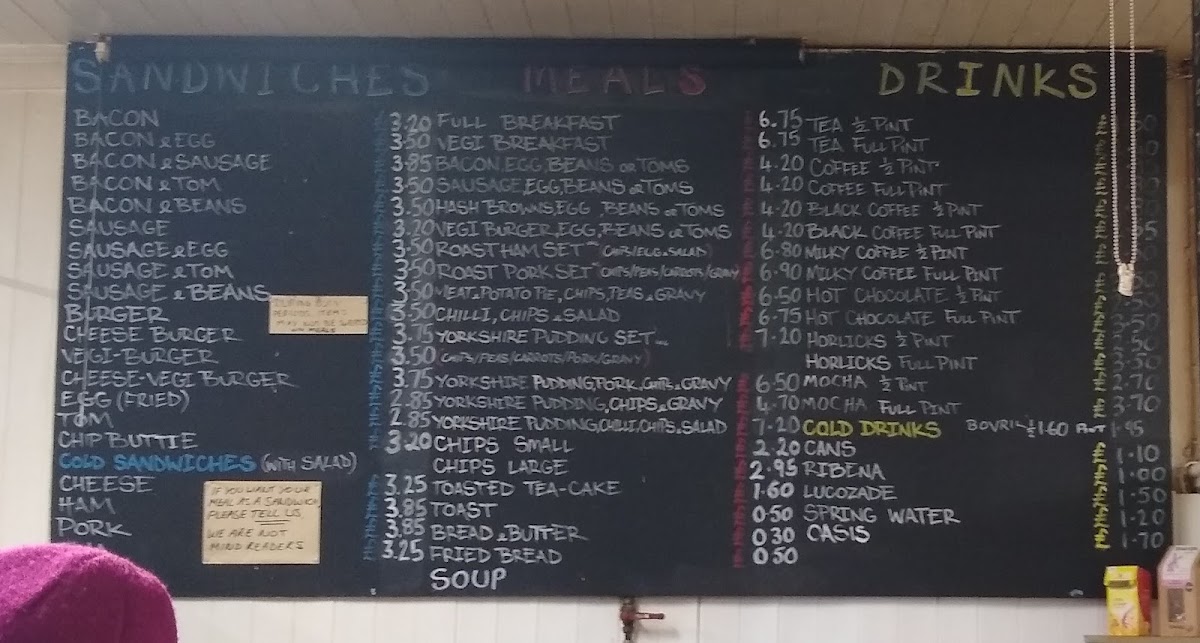 SANDWICHES
BACON 3.20
BACON & EGG 3.50
BACON & SAUSAGE 3.85
BACON & TOM 3.50
BACON & BEANS 3.50
SAUSAGE 3.20
SAUSAGE & EGG 3.50
SAUSAGE & TOM 3.50
SAUSAGE & BEANS 3.50
BURGER 3.50
CHEESE BURGER 3.75
VEGI-BURGER 3.50
CHEESE-VEGI BURGER 3.75
EGG (FRIED) 2.85
TOM 2.85
CHIP BUTTIE 3.20
COLD SANDWICHES (WITH SALAD)
CHEESE 3.25
HAM 3.85
PORK 3.85
3.25
DURING BUSY
PERIODS ITEMS
MAY NOT BE
MEALS
IF YOU WANT YOUR
MEAL AS A SANDWICH
PLEASE TELL US
WE ARE NOT
MIND READERS
MEALS
FULL BREAKFAST 6.75
VEGI BREAKFAST 6.75
BACON, EGG, BEANS OR TOMS 4.20
SAUSAGE, EGG, BEANS OR TOMS 4.20
HASH BROWNS, EGG, BEANS OR TOMS 4.20
VEGI BURGER, EGG, BEANS OR TOMS 4.20
ROAST HAM SET (CHIPS/EGG & SALAD) 6.80
ROAST PORK SET (CHIPS/PEAS/CARROTS/GRAVY 6.90
MEAT & POTATO PIE, CHIPS, PEAS & GRAVY 6.50
CHILLI, CHIPS & SALAD 6.75
YORKSHIRE PUDDING SET 7.20
(CHIPS/PEAS/CARROTS/PORK/GRAVY)
YORKSHIRE PUDDING, PORK, CHIPS & GRAVY 6.50
YORKSHIRE PUDDING, CHIPS & GRAVY 4.70
YORKSHIRE PUDDING, CHILLI, CHIPS & SALAD 7.20
CHIPS SMALL 2.20
CHIPS LARGE 2.95
TOASTED TEA-CAKE 1.60
TOAST 0.50
BREAD & BUTTER 0.30
FRIED BREAD 0.50
SOUP
DRINKS
TEA ½ PINT
TEA FULL PINT
COFFEE ½ PINT
COFFEE FULL PINT
BLACK COFFEE ½ PINT
BLACK COFFEE FULL PINT
MILKY COFFEE ½ PINT
MILKY COFFEE FULL PINT
HOT CHOCOLATE ½ PINT
HOT CHOCOLATE FULL PINT
HORLICKS ½ PINT
HORLICKS FULL PINT
MOCHA ½ PINT 2.70
MOCHA FULL PINT 3.70
COLD DRINKS BOVRIL ½ 1.60 PINT 1.95
CANS 1.10
RIBENA 1.00
LUCOZADE 1.50
SPRING WATER 1.20
OASIS 1.70